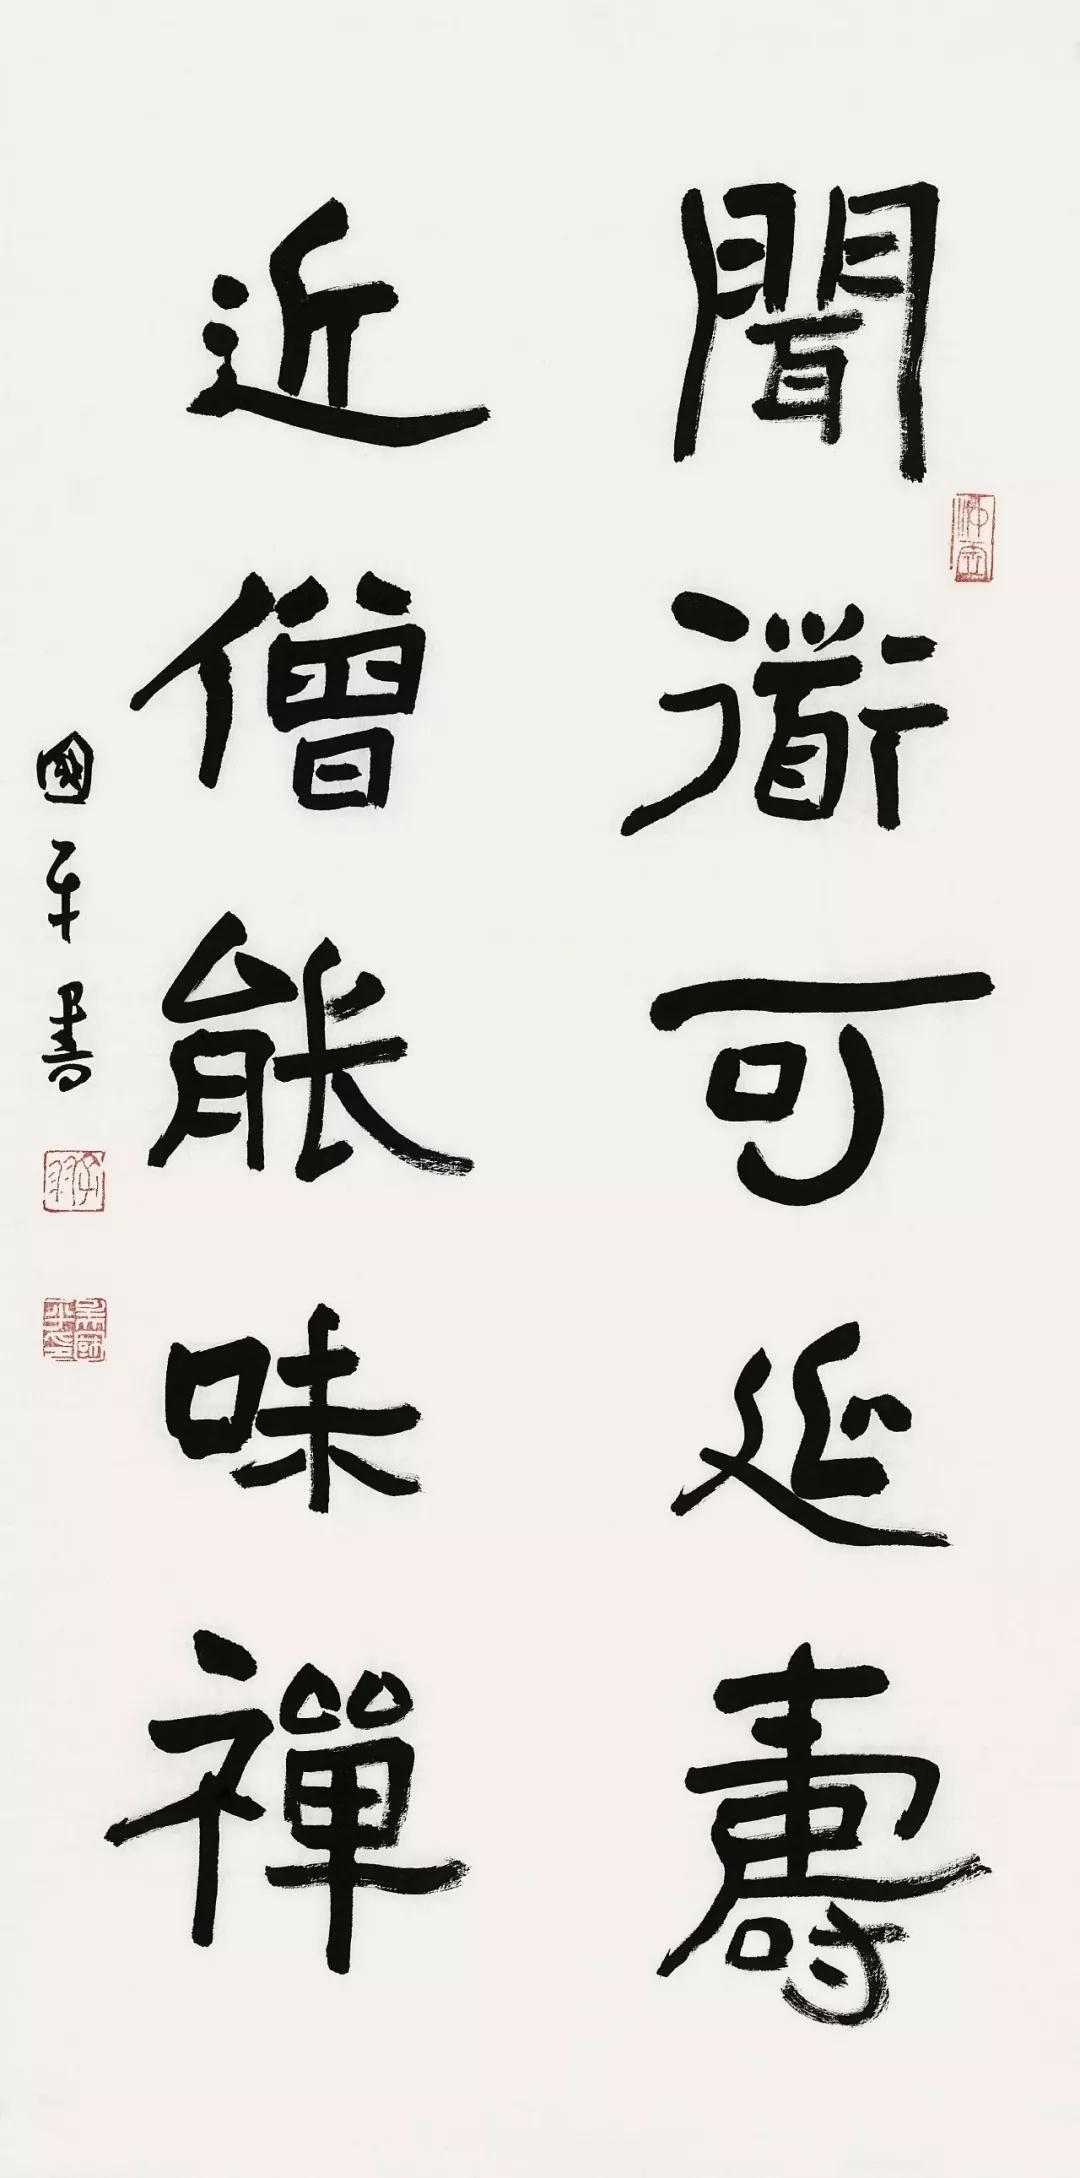 聞衟可延壽
近僧能味禪
國平書